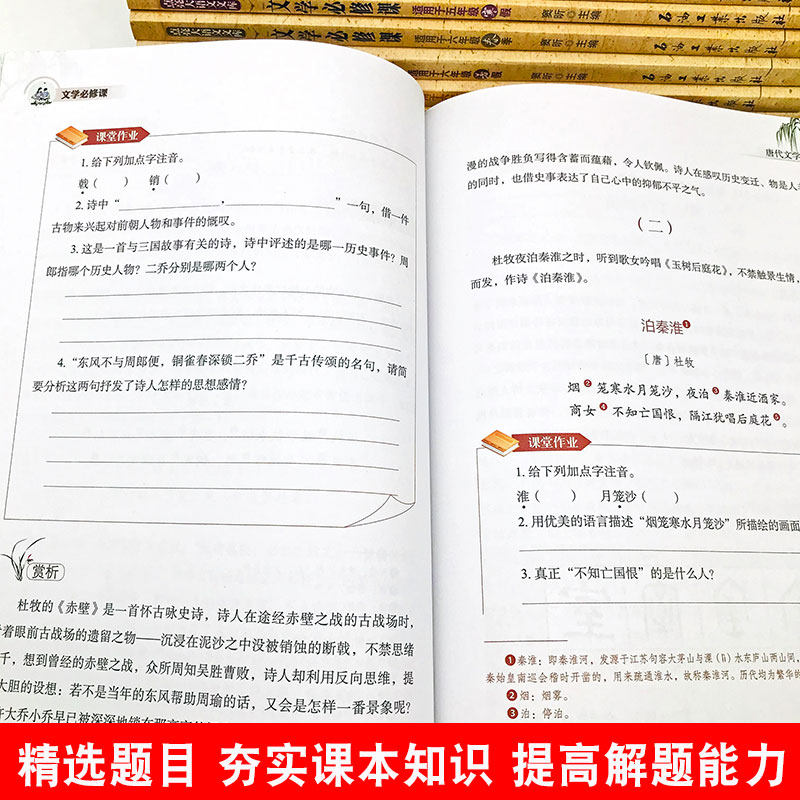 文学必修课 适用于五年级 寒假 窦昕 主编 石油工业出版社
文学必修课 适用于六年级 春季 窦昕 主编 石油工业出版社
适用于六年级 窦昕 主编 石油工业出版社
文学必修课
课堂作业
1. 给下列加点字注音。
戟（ ） 销（ ）
2. 诗中“__________，__________”一句，借一件
古物来兴起对前朝人物和事件的慨叹。
3. 这是一首与三国故事有关的诗，诗中评述的是哪一历史事件？周
郎指哪个历史人物？二乔分别是哪两个人？
4. “东风不与周郎便，铜雀春深锁二乔”是千古传颂的名句，请简
要分析这两句抒发了诗人怎样的思想感情？
赏析
杜牧的《赤壁》是一首怀古咏史诗，诗人在途经赤壁之战的古战场时，
着眼前古战场的遗留之物——沉浸在泥沙之中没被销蚀的断戟，不禁思绪
千，想到曾经的赤壁之战，众所周知吴胜曹败，诗人却利用反向思维，提
大胆的设想：若不是当年的东风帮助周瑜的话，又会是怎样一番景象呢？
许大乔小乔早已被深深地锁在那
唐代文学
漫的战争胜负写得含蓄而蕴藉，令人钦佩。诗人在感叹历史变迁、物是人
的同时，也借史事表达了自己心中的抑郁不平之气。
（二）
杜牧夜泊秦淮之时，听到歌女吟唱《玉树后庭花》，不禁触景生情，
而发，作诗《泊秦淮》。
泊秦淮❶
〔唐〕杜牧
烟❷笼寒水月笼沙，夜泊❸秦淮近酒家。
商女❹不知亡国恨，隔江犹唱后庭花❺。
课堂作业
1. 给下列加点字注音。
淮（ ） 月笼沙（ ）
2. 用优美的语言描述“烟笼寒水月笼沙”所描绘的画面
3. 真正“不知亡国恨”的是什么人？
❶ 秦淮：即秦淮河，发源于江苏句容大茅山与溧（lì）水东庐山两山间，
秦始皇南巡会稽时开凿的，用来疏通淮水，故称秦淮河。历代均为繁华的
❷ 烟：烟雾。
❸ 泊：停泊。
精选题目 夯实课本知识 提高解题能力